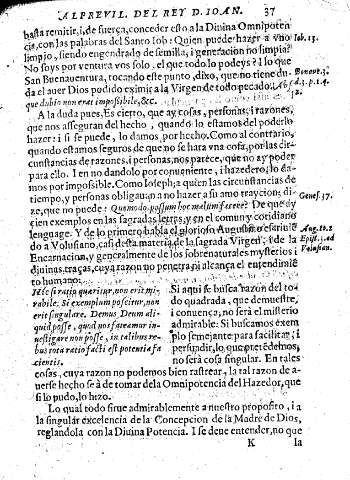 AL PREVIL. DEL REY D. IOAN. 37
hasta remitir, i, de fuerça, conceder esto a la Divina Omnipoten
cia, con las palabras del Santo Iob: Quien puede hazer a vno
limpio, siendo engendrado de semilla, i generacion no limpia?
No soys por ventura vos solo, el que todo lo podeys? I lo que
San Buenauentura, tocando este punto, dixo, que no tiene du-
da el auer Dios podido eximir a la Virgen de todo pecado:
que dubio non erat impossibile, &c.
Iob. 13.
Bonaue. 3.
d. 3. p. 1.
A la duda pues, Es cierto, que ay cosas, personas, i razones,
que nos asseguran del hecho, quando lo estamos del poderlo
hazer: i si se puede, lo damos por hecho. Como al contrario,
quando estamos seguros de que no se hara vna cosa, por las cir-
cunstancias de razones, i personas, nos parece, que no ay poder
para ello. I en no dandolo por conueniente, i hazedero, lo da-
mos por impossible. Como Ioseph, a quien las circunstancias de
tiempo, y personas obligauan a no hazer a su amo traycion, di-
ze, que no puede: Quomodo possum hoc malum facere? De que
cien exemplos en las sagradas letras, y en el comun y cotidiano
lenguage. Y de lo primero habla el glorioso Augustino escriuié
do a Volusiano, casi desta materia de la sagrada Virgen, i de la
Encarnacion, y generalmente de los sobrenaturales mysterios i
diuinas traças, cuya razon no penetra ni alcança el entendimié
to humano.
Genes. 37.
Aug. to. 2
Epist. 3. ad
Volusian.
ratio quæritur, non erit mi-
rabile. Si exemplum poscitur, non
erit singulare. Demus Deum ali-
quid posse, quod nos fateamur in-
uestigare non posse, in talibus re-
bus tota ratio facti est potentia fa
cientis.
Si aqui se busca razon del to
do quadrada, que demuestre,
i conuença, no será el misterio
admirable: Si buscamos exem
plo semejante para facilitar, i
persuadir, lo que pretédemos,
no será cosa singular. En tales
cosas, cuya razon no podemos bien rastrear, la tal razon de a-
uerse hecho se à de tomar de la Omnipotencia del Hazedor, que
si lo pudo, lo hizo.
Lo qual todo sirue admirablemente a nuestro proposito, i a
la singular excelencia de la Concepcion de la Madre de Dios,
reglandola con la Diuina Potencia. I se deue entender, no que
K la